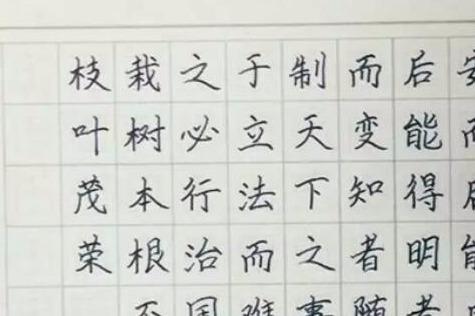 安而后能
后能得明者
而变知者随
制天下之事
于立法而难
之必行治国
栽树本根不
枝叶茂荣